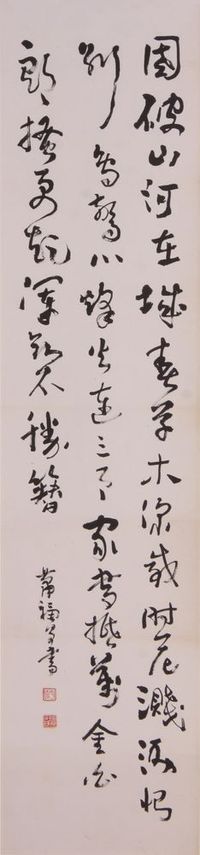 國破山河在城春草木深感時花濺淚恨
別鳥驚心烽火連三月家書抵萬金白
頭搔更短渾欲不勝簪
福書